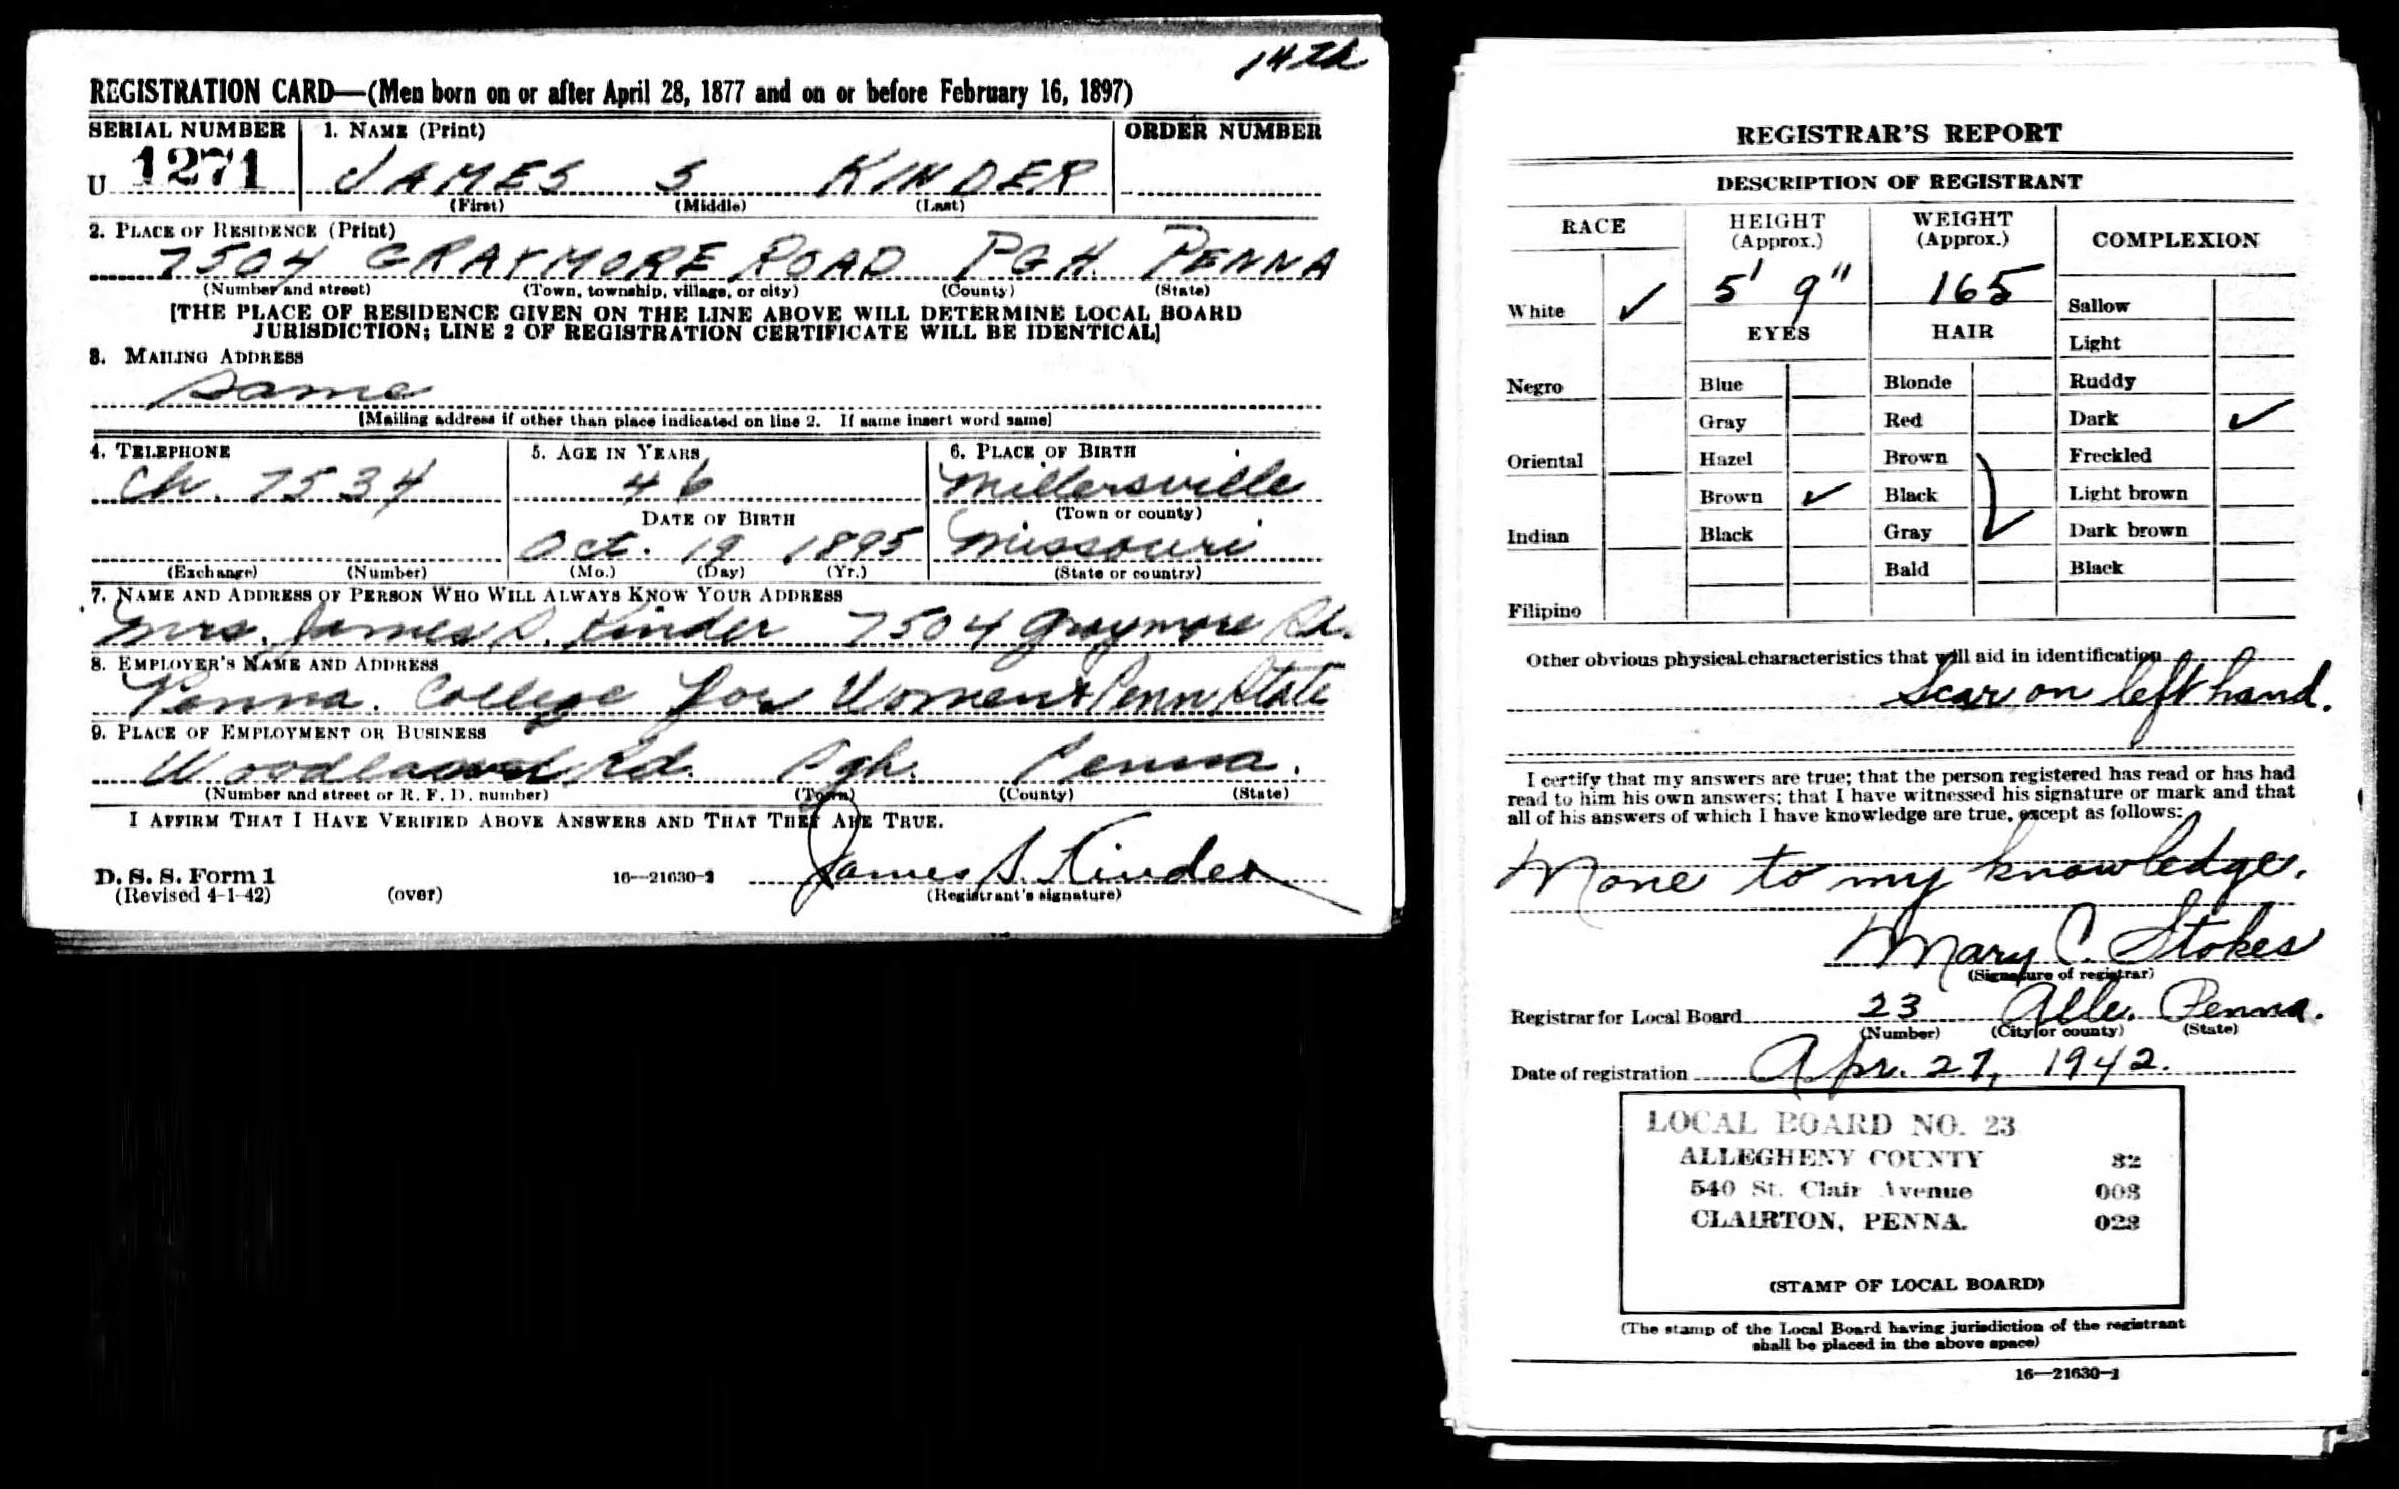 14th
REGISTRATION CARD—(Men born on or after April 28, 1877 and on or before February 16, 1897)
SERIAL NUMBER 1. NAME (Print) ORDER NUMBER
U 1271 JAMES S KINDER
(First) (Middle) (Last)
2. PLACE OF RESIDENCE (Print)
7504 GRAYMORE ROAD PGH. PENNA
(Number and street) (Town, township, village, or city) (County) (State)
[THE PLACE OF RESIDENCE GIVEN ON THE LINE ABOVE WILL DETERMINE LOCAL BOARD
JURISDICTION; LINE 2 OF REGISTRATION CERTIFICATE WILL BE IDENTICAL]
3. MAILING ADDRESS
Same
[Mailing address if other than place indicated on line 2. If same insert word same]
4. TELEPHONE 5. AGE IN YEARS 6. PLACE OF BIRTH
Ch. 7534 46 Millersville
DATE OF BIRTH (Town or county)
Oct. 19 1895 Missouri
(Exchange) (Number) (Mo.) (Day) (Yr.) (State or country)
7. NAME AND ADDRESS OF PERSON WHO WILL ALWAYS KNOW YOUR ADDRESS
Mrs. James S. Kinder 7504 Graymore Rd.
8. EMPLOYER'S NAME AND ADDRESS
Penna. College for Women & Penn State
9. PLACE OF EMPLOYMENT OR BUSINESS
Woodland Rd. Pgh. Penna.
(Number and street or R. F. D. number) (Town) (County) (State)
I AFFIRM THAT I HAVE VERIFIED ABOVE ANSWERS AND THAT THEY ARE TRUE.
James S. Kinder
D. S. S. Form 1 16—21630-2
(Revised 4-1-42) (over) (Registrant's signature)
REGISTRAR'S REPORT
DESCRIPTION OF REGISTRANT
RACE HEIGHT (Approx.) WEIGHT (Approx.) COMPLEXION
5' 9" 165
White ✓ EYES HAIR Sallow
Light
Negro Blue Blonde Ruddy
Gray Red Dark ✓
Oriental Hazel Brown Freckled
Brown ✓ Black Light brown
Indian Black Gray ✓ Dark brown
Bald Black
Filipino
Other obvious physical characteristics that will aid in identification
Scar on left hand.
I certify that my answers are true; that the person registered has read or has had
read to him his own answers; that I have witnessed his signature or mark and that
all of his answers of which I have knowledge are true, except as follows:
None to my knowledge.
Mary C. Stokes
(Signature of registrar)
Registrar for Local Board 23 Alle. Penna.
(Number) (City or county) (State)
Date of registration Apr. 27, 1942.
LOCAL BOARD NO. 23
ALLEGHENY COUNTY 32
540 St. Clair Avenue 003
CLAIRTON, PENNA. 023
(STAMP OF LOCAL BOARD)
(The stamp of the Local Board having jurisdiction of the registrant
shall be placed in the above space)
16—21630-1